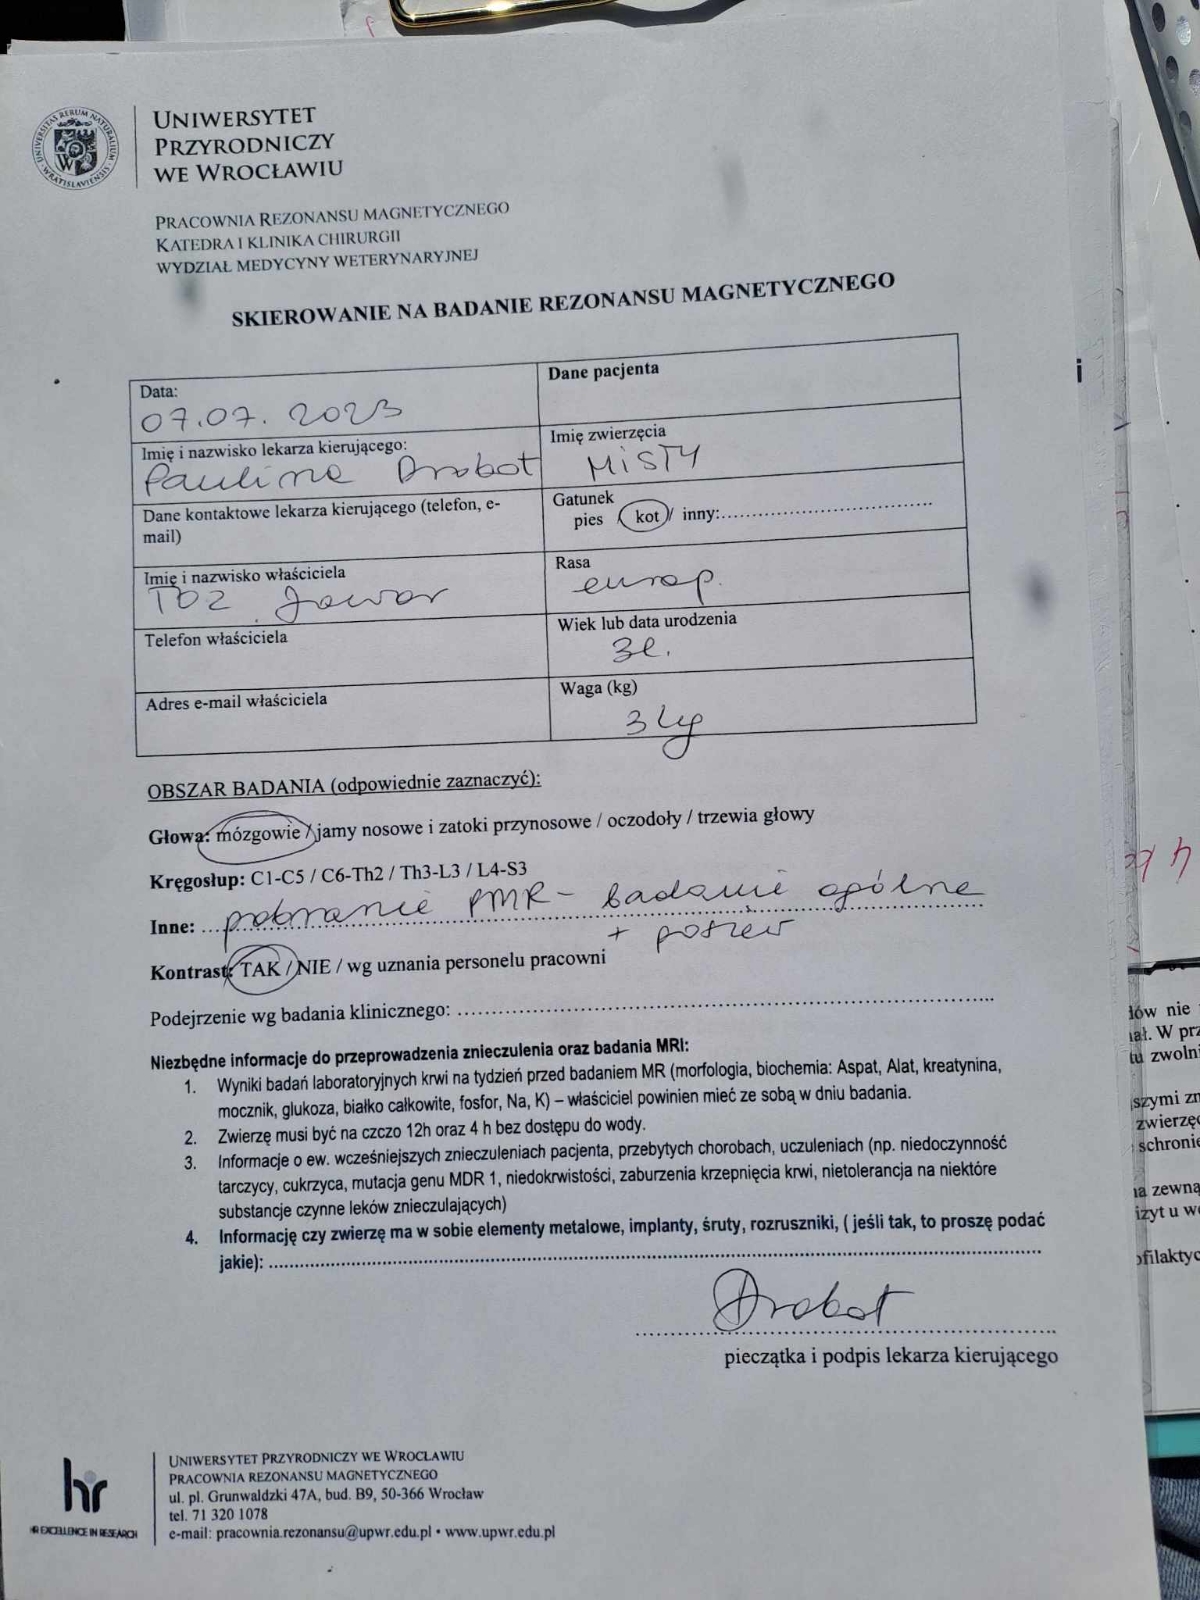 UNIWERSYTET
PRZYRODNICZY
WE WROCŁAWIU
PRACOWNIA REZONANSU MAGNETYCZNEGO
KATEDRA I KLINIKA CHIRURGII
WYDZIAŁ MEDYCYNY WETERYNARYJNEJ
SKIEROWANIE NA BADANIE REZONANSU MAGNETYCZNEGO
Data:
07.07.2023
Dane pacjenta
Imię i nazwisko lekarza kierującego:
Paulina Drobot
Imię zwierzęcia
MISTY
Dane kontaktowe lekarza kierującego (telefon, e-
mail)
Gatunek
pies / kot / inny:
Imię i nazwisko właściciela
TOZ Jawor
Rasa
europ.
Telefon właściciela
Wiek lub data urodzenia
3l.
Adres e-mail właściciela
Waga (kg)
3 kg
OBSZAR BADANIA (odpowiednie zaznaczyć):
Głowa: mózgowie / jamy nosowe i zatoki przynosowe / oczodoły / trzewia głowy
Kręgosłup: C1-C5 / C6-Th2 / Th3-L3 / L4-S3
Inne: pobranie PMR - badanie ogólne
+ posiew
Kontrast: TAK / NIE / wg uznania personelu pracowni
Podejrzenie wg badania klinicznego:
Niezbędne informacje do przeprowadzenia znieczulenia oraz badania MRI:
1. Wyniki badań laboratoryjnych krwi na tydzień przed badaniem MR (morfologia, biochemia: Aspat, Alat, kreatynina,
mocznik, glukoza, białko całkowite, fosfor, Na, K) – właściciel powinien mieć ze sobą w dniu badania.
2. Zwierzę musi być na czczo 12h oraz 4 h bez dostępu do wody.
3. Informacje o ew. wcześniejszych znieczuleniach pacjenta, przebytych chorobach, uczuleniach (np. niedoczynność
tarczycy, cukrzyca, mutacja genu MDR 1, niedokrwistości, zaburzenia krzepnięcia krwi, nietolerancja na niektóre
substancje czynne leków znieczulających)
4. Informację czy zwierzę ma w sobie elementy metalowe, implanty, śruty, rozruszniki, ( jeśli tak, to proszę podać
jakie):
Drobot
pieczątka i podpis lekarza kierującego
hr
HR EXCELLENCE IN RESEARCH
UNIWERSYTET PRZYRODNICZY WE WROCŁAWIU
PRACOWNIA REZONANSU MAGNETYCZNEGO
ul. pl. Grunwaldzki 47A, bud. B9, 50-366 Wrocław
tel. 71 320 1078
e-mail: pracownia.rezonansu@upwr.edu.pl • www.upwr.edu.pl